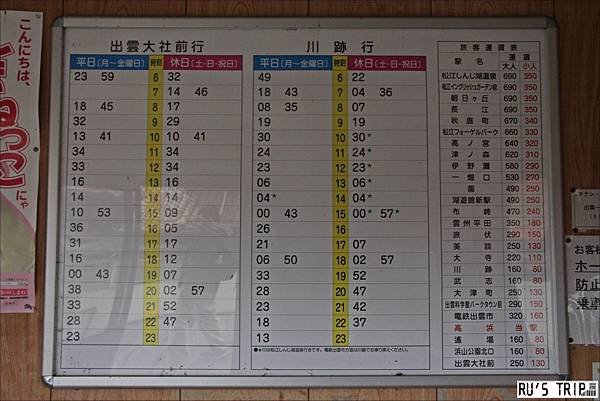 こんにちは、
出雲大社前行
平日(月～金曜日) 時刻 休日(土・日・祝日)
23 59 6 32
7 14 46
18 45 8 17
32 9 29
13 41 10 10 41
34 11 34
33 12 34
16 13 16
14 14 14
10 53 15 09
36 16 05
31 17 31
16 18 12
00 43 19 07
38 20 02 57
33 21 52
28 22 47
23 23
川跡行
平日(月～金曜日) 時刻 休日(土・日・祝日)
49 6 22
18 43 7 04 36
08 35 8 07
19 9 19
30 10 30*
24 11 24*
23 12 23*
06 13 06*
04* 14 04*
00 43 15 00* 57*
21 16
21 17 07
06 50 18 02 57
33 19 52
28 20 47
23 21 42
18 22 37
13 23
旅客運賃表
駅名 運賃
大人 小人
松江しんじ湖温泉 690 350
松江イングリッシュガーデン前 690 350
朝日ヶ丘 690 350
長江 690 350
秋鹿町 670 340
松江フォーゲルパーク 660 330
高ノ宮 640 320
津ノ森 620 310
伊野灘 580 290
一畑口 530 270
園 490 250
湖遊館新駅 490 250
布崎 470 240
雲州平田 350 180
旅伏 290 150
美談 250 130
大寺 220 110
川跡 160 80
武志 160 80
大津町 250 130
出雲科学館パークタウン前 290 150
電鉄出雲市 320 160
高浜 当駅
遙堪 160 80
浜山公園北口 160 80
出雲大社前 250 130
お客
ホー
防止
乗車
RU'S TRIP